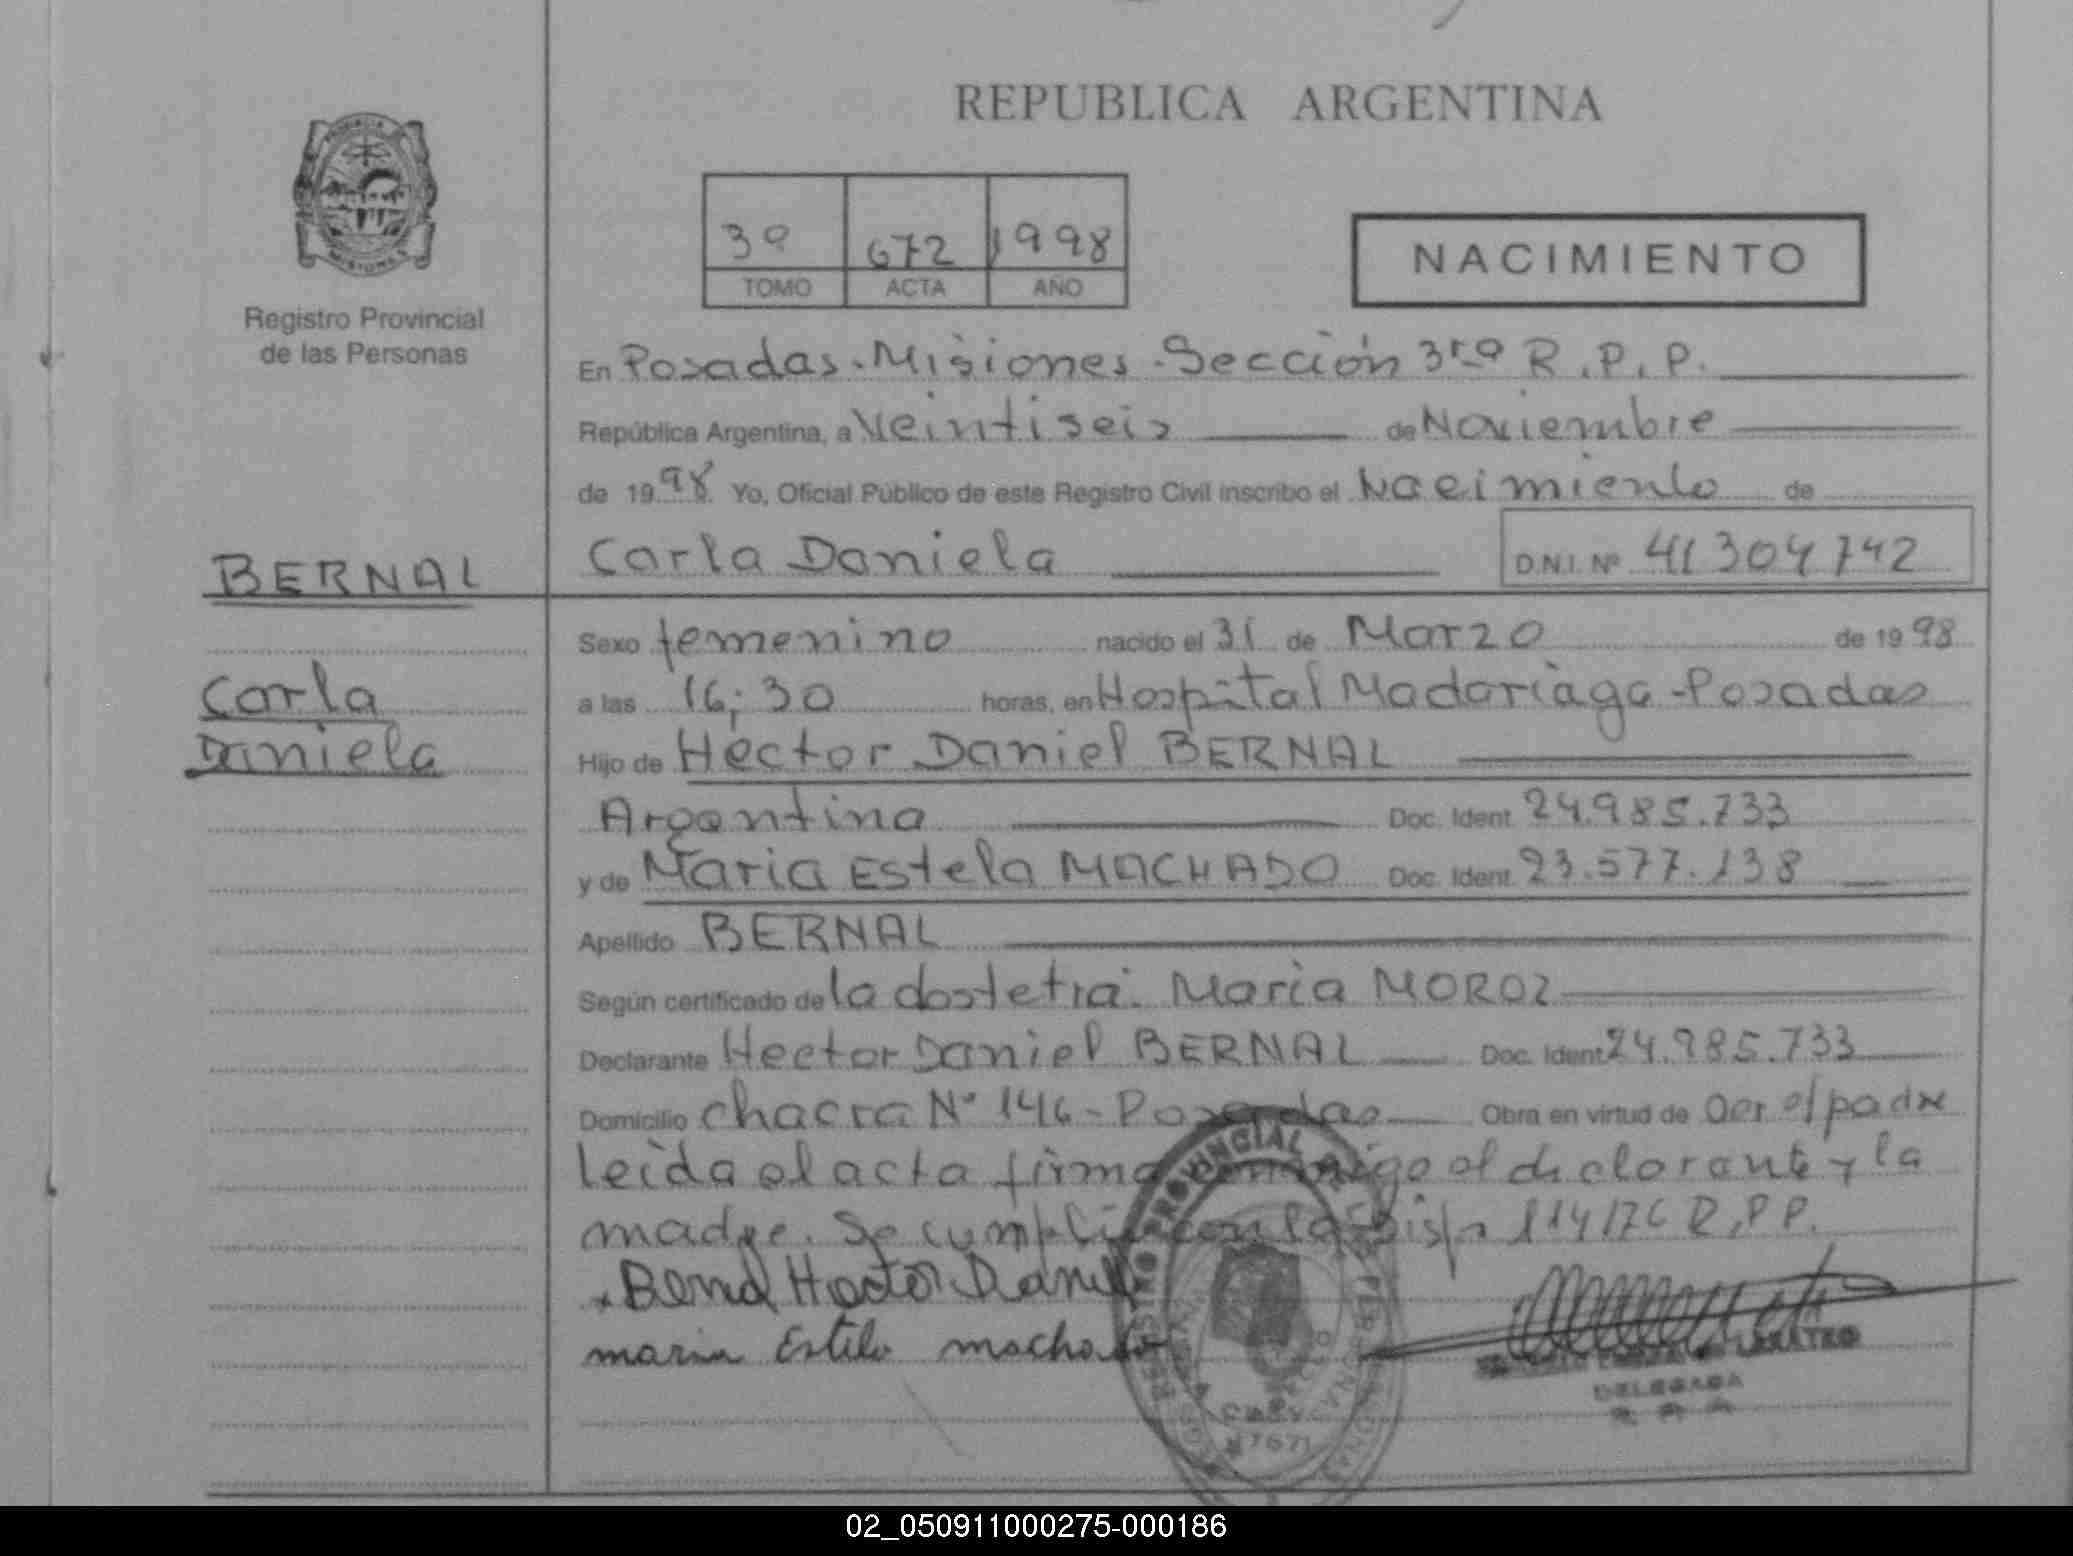 REPUBLICA ARGENTINA
PROVINCIA
MISIONES
Registro Provincial
de las Personas
3º 672 1998
TOMO ACTA AÑO
NACIMIENTO
En Posadas-Misiones-Sección 3ra R.P.P.
República Argentina, a Veintiseis de Noviembre
de 1998 Yo, Oficial Público de este Registro Civil inscribo el Nacimiento de
BERNAL
Carla Daniela
D.N.I. Nº 41304742
Sexo femenino nacido el 31 de Marzo de 1998
Carla
a las 16;30 horas, en Hospital Madariaga-Posadas
Daniela
Hijo de Hector Daniel BERNAL
Argentina Doc. Ident. 24.985.733
y de Maria Estela MACHADO Doc. Ident. 23.577.138
Apellido BERNAL
Según certificado de la dostetra: Maria MOROZ
Declarante Hector Daniel BERNAL Doc. Ident. 24.985.733
Domicilio chacra Nº 146-Posadas Obra en virtud de ser el padre
leida el acta firma conmigo el declarante y la
madre. Se cumplió con la Disp. 114/76 R.P.P.
Bernal Hector Daniel
maria Estela machado
REGISTRO PROVINCIAL DE
DELEGADA
02_050911000275-000186